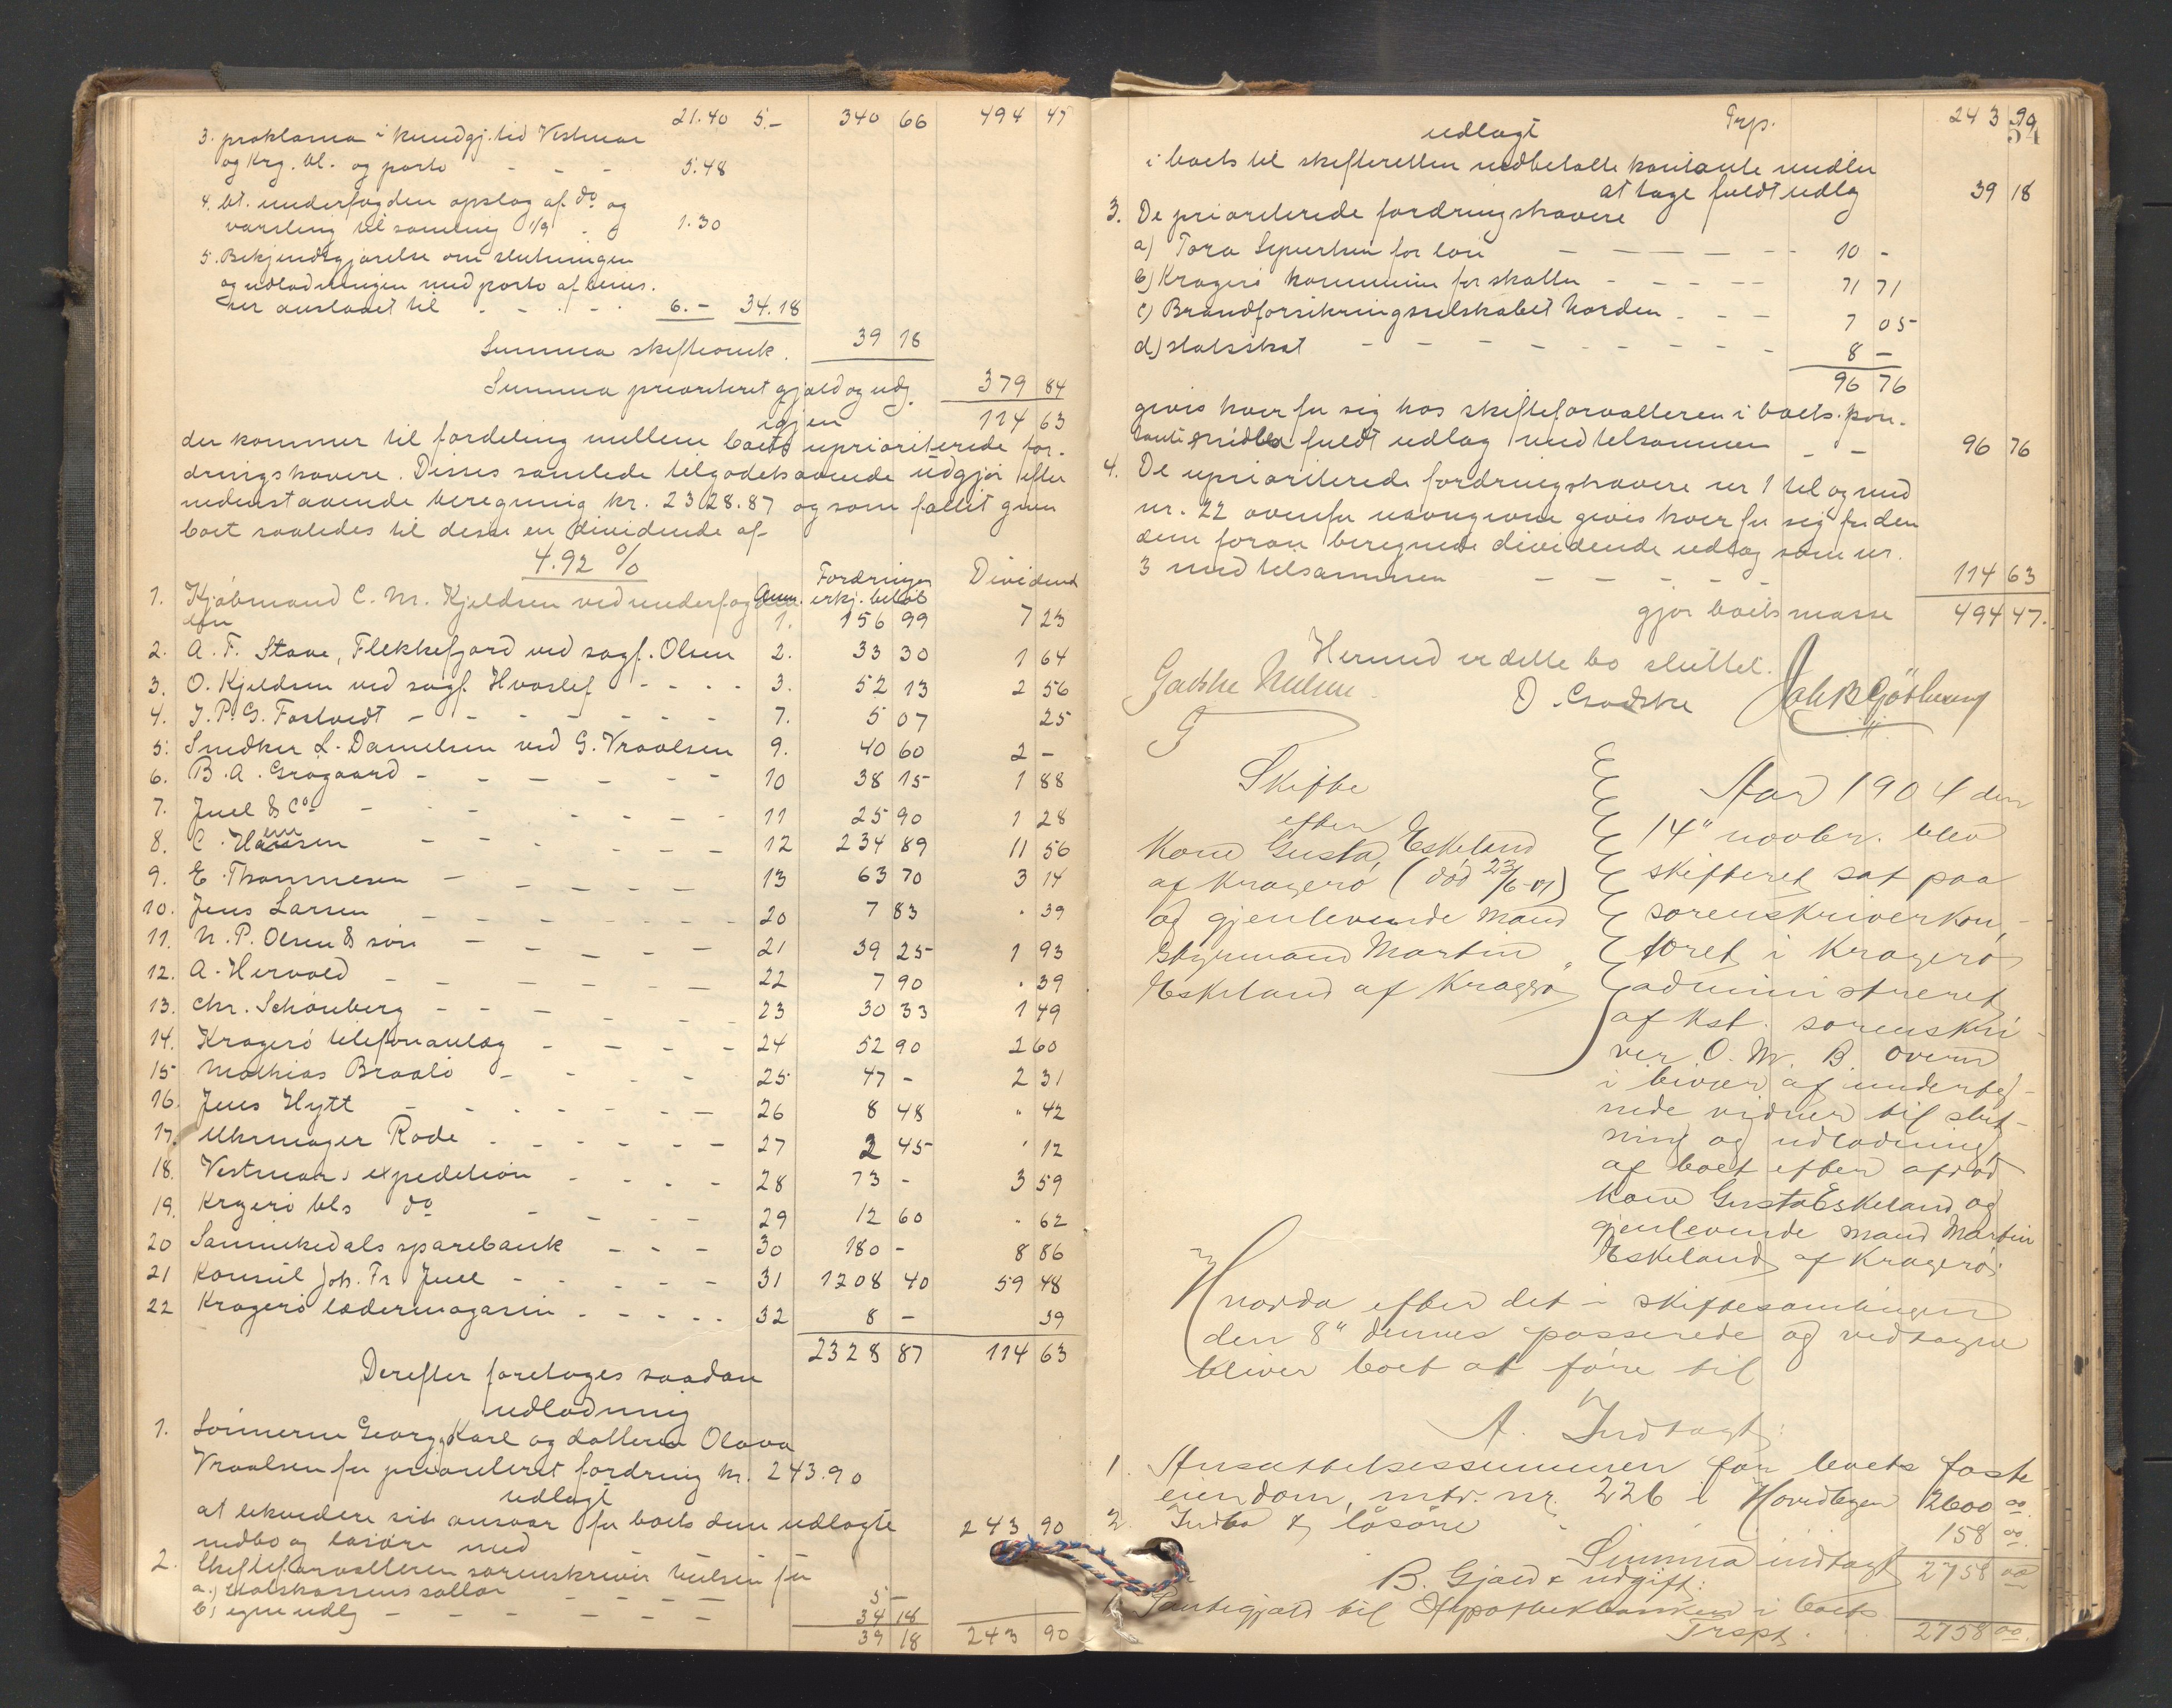 21.40 5.- 340 66 494 47
3. proklama i kundgj. tid Vestmar
og Krg. bl. og porto - - - 5.48
4. bt. underfogden opslag af do og
varsling til samling 1/9 - 1.30
5. Bekjendtgjørelse om slutningen
og udlodningen med porto af denne
er anslaaet til - - - - 6.- 34.18
Summa skifteomk. 39 18
Summa prioriteret gjæld og udg. 379 84
igjen 114 63
der kommer til fordeling mellem boets uprioriterede for-
dringshavere. Disses samlede tilgodehavende udgjør efter
nedenstaaende beregning kr. 2328.87 og som fallit giver
boet saaledes til desse en dividende af
4.92 %
Fordringer Dividend
1. Kjøbmand C. M. Kjeldsen ved underfogden Anm. erkj. beløb
1. 156 99 7 23
2. A. F. Stave, Flekkefjord ved sagf. Olsen 2. 33 30 1 64
3. O. Kjeldsen ved sagf. Hvoslef - - - - 3. 52 13 2 56
4. J. P. G. Fostvedt - - - - - - - 7. 5 07 25
5. Snedker L. Danielsen ved G. Vraalsen 9. 40 60 2 -
6. B. A. Grøgaard - - - - - - 10 38 15 1 88
7. Juel & Co - - - - - - - 11 25 90 1 28
8. C. Hansen - - - - - - 12 234 89 11 56
9. E. Thommesen - - - - - 13 63 70 3 14
10. Jens Larsen - - - - - - 20 7 83 . 39
11. N. P. Olsen & søn - - - - - 21 39 25 1 93
12. A. Hervold - - - - - - 22 7 90 . 39
13. Chr. Schönberg - - - - - - 23 30 33 1 49
14. Kragerø telefonanlæg - - - - 24 52 90 2 60
15 Mathias Braalø - - - - 25 47 - 2 31
16. Jens Hytt - - - - - - - 26 8 48 " 42
17. Uhrmager Rode - - - - - - 27 2 45 ' 12
18. Vestmars expedition - - - - 28 73 - 3 59
19. Kragerø bls do - - - - 29 12 60 - 62
20 Sannikedals sparebank - - - 30 180 - 8 86
21 Konsul Joh. Fr. Juel - - - - - 31 1208 40 59 48
22 Kragerø lædermagasin - - - - - 32 8 - 39
2328 87 114 63
Derefter foretages saadan
udlodning
1. Sønnerne Georg, Karl og datteren Olava
Vraalsen for prioriteret fordring kr. 243.90
udlagt
at likvidere sit ansvar for boets dem udlagte
indbo og løsøre med 243 90
2. Skifteforvalteren sorenskriver Nielsen for
a) statskassens sallær - - - - - 5 -
b) egne udlæg - - - - - - - 34 18
39 18 243 90
Trp. 243 90
54
udlagt
i boets til skifteretten indbetalte kontante midler
at tage fuldt udlæg 39 18
3. De prioriterede fordringshavere
a) Tora Sivertsen for løn - - - - - 10 -
b) Kragerø kommune for skatter - - - - - 71 71
c) Brandforsikringsselskabet Norden - - - 7 05
d) statsskat - - - - - - - - - 8 -
96 76
gives hver for sig hos skifteforvalteren i boets kon-
tante midler fuldt udlæg med tilsammen - - 96 76
4. De uprioriterede fordringshavere nr 1 til og med
nr. 22 ovenfor navngivne gives hver for sig for den
dem foran beregnede dividende udlæg som nr.
3 med tilsammen - - - - - 114 63
gjør boets masse 494 47.
Hermed er dette bo sluttet.
Gadske Nielsen. O. Gradske
Skifte
efter
Kone Gusta Eskeland
af Kragerø (død 23/6-01)
og gjenlevende mand
Styrmand Martin
Eskeland af Kragerø
Aar 1904 den
14" novbr. blev
skifteret sat paa
sorenskriverkon-
toret i Kragerø
administreret
af kst. sorenskri-
ver O. M. B. Overn
i bivær af underteg-
nede vidner til slut-
ning og udlodning
af boet efter afdød
kone Gusta Eskeland og
gjenlevende mand Martin
Eskeland af Kragerø.
Hvorda efter det i skiftesamlingen
den 8" dennes passerede og vedtagne
bliver boet at føre til
A. Indtægt:
1. Ansættelsessummen for boets faste
eiendom, mtr. nr. 226 i Hovedbyen 2600 00
2. Indbo & løsøre - 158 00.
Summa indtægt 2758 00
B. Gjæld & udgift:
1. Pantegjæld til Hypothekbanken i boets
Trspt. 2758 00.